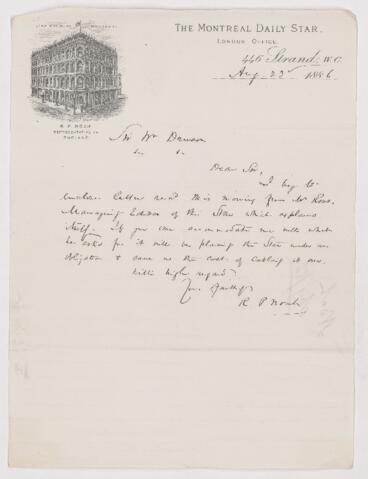 THE MONTREAL DAILY STAR.
LONDON OFFICE.
446 Strand, W.C.
Aug 22d 1886
REPRESENTATIVE IN
ENGLAND
Sir Wm Dawson
Dear Sir,
I beg to
enclose letter rec'd this morning from Mr Ross,
Managing Editor of the Star which explains
itself. If you can accommodate me with what
he asks for it will be placing the Star under an
obligation & save us the cost of cabling it over.
With high regard
Yours faithfully
R P